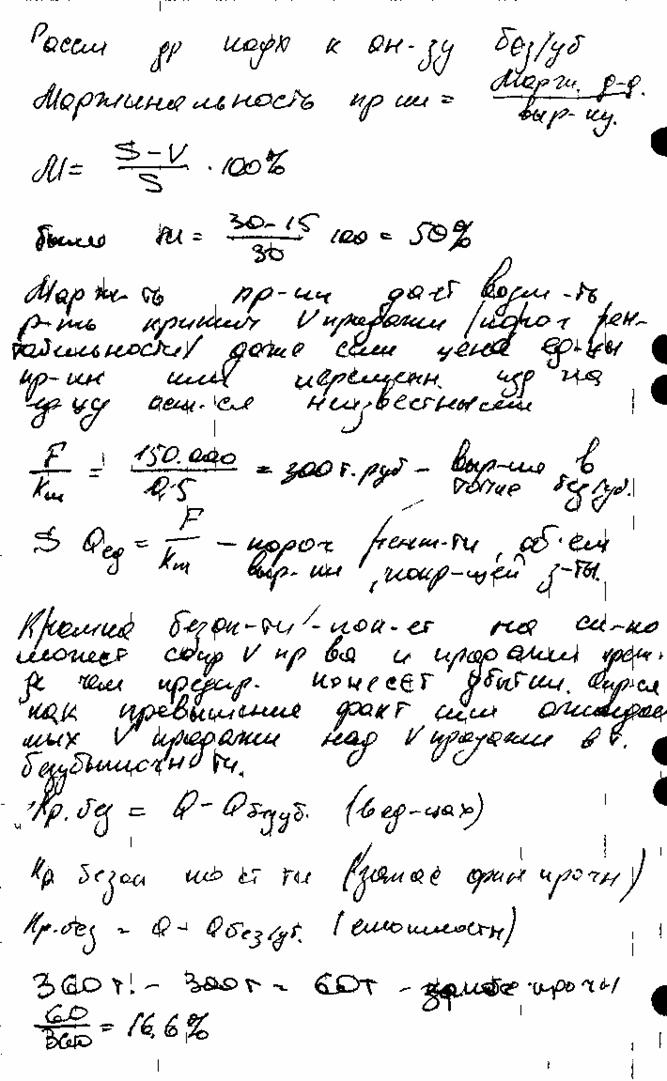 Рассм др подх к ан-зу без/уб
Маржинальность пр-ии = Марж. д-д. / выр-ку.
M = (S-V)/S · 100%
было m = (30-15)/30 100 = 50%
Марж-ть пр-ии дает возм-ть
р-ть критич V продажи /порог рен-
табельности/ даже если цена ед-цы
пр-ии или перемен. изд на
ед-цу ост-ся неизвестными
F/Km = 150.000/0,5 = 300т.руб - выр-ка в
точке без/уб.
S Qед = F/Km - порог рент-ти, объем
выр-ки, покр-щей з-ты.
Кромка безоп-ти - пок-ет на ск-ко
может сокр V пр-ва и продажи преж-
де чем предпр. понесет убытки. Опр-ся
как превышение факт или ожидае
мых V продажи над V продажи в т.
безубыточности.
Кр.без = Q - Qбезуб. (в ед-цах)
Кр безоп ности (запас фин прочн)
Кр.без = Q - Qбез/уб. (стоимости)
360т. - 300т = 60т - запас прочн
60/360 = 16,6%